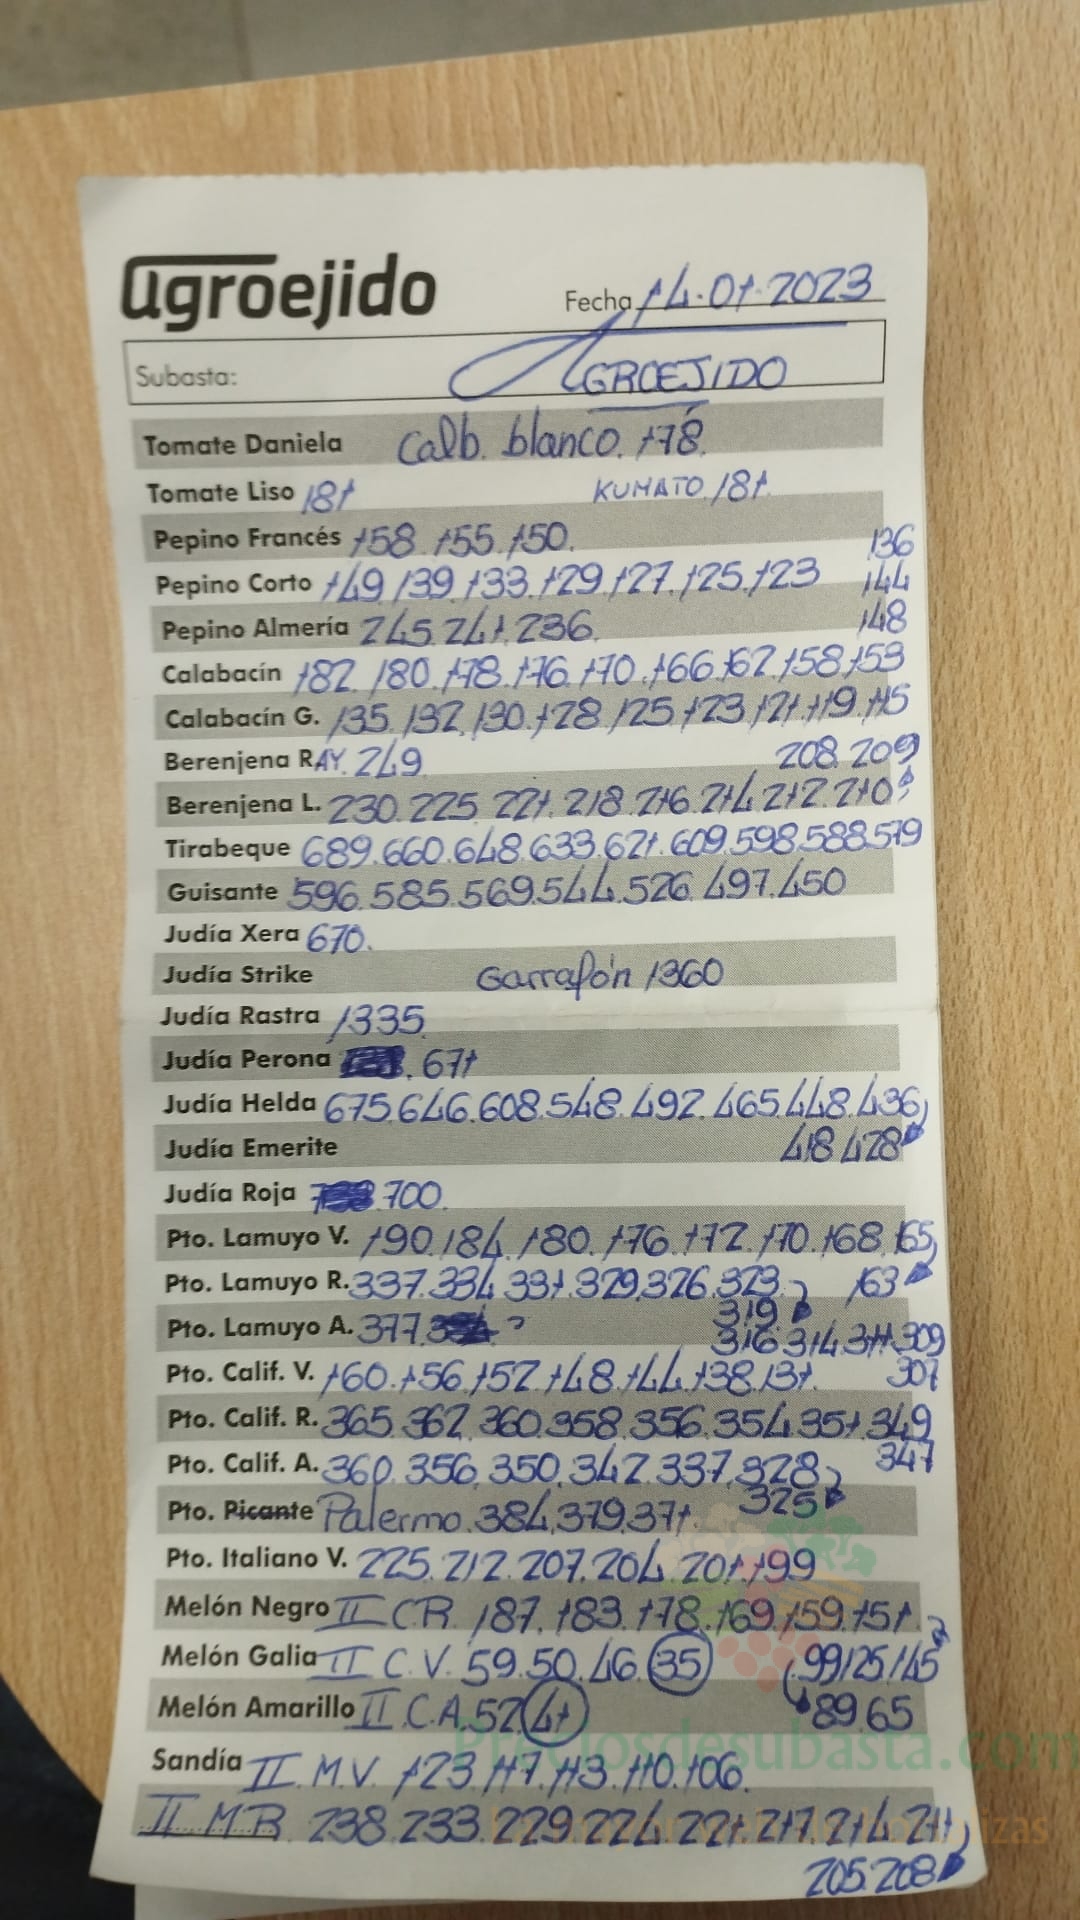 agroejido
Fecha 14.01.2023
Subasta: AGROEJIDO
Tomate Daniela Calb. blanco. 178.
Tomate Liso 181 KUMATO. 181.
Pepino Francés 158. 155. 150.
136
Pepino Corto 149. 139. 133. 129. 127. 125. 123
144
Pepino Almería 245. 241. 236.
148
Calabacín 182. 180. 178. 176. 170. 166. 162. 158. 153
Calabacín G. 135. 132. 130. 128. 125. 123. 121. 119. 115
Berenjena RAY. 249. 208. 209
Berenjena L. 230. 225. 221. 218. 216. 214. 212. 210
Tirabeque 689. 660. 648. 633. 621. 609. 598. 588. 579
Guisante 596. 585. 569. 544. 526. 497. 450
Judía Xera 670.
Judía Strike Garrafón 1360
Judía Rastra 1335.
Judía Perona . 671
Judía Helda 675. 646. 608. 548. 492. 465. 448. 436
Judía Emerite 418. 428
Judía Roja 700.
Pto. Lamuyo V. 190. 184. 180. 176. 172. 170. 168. 165
Pto. Lamuyo R. 337. 334. 331. 329. 326. 323. 163
319
Pto. Lamuyo A. 377. 316. 314. 311. 309
Pto. Calif. V. 160. 156. 152. 148. 144. 138. 131. 307
Pto. Calif. R. 365. 362. 360. 358. 356. 354. 351. 349
347
Pto. Calif. A. 360. 356. 350. 342. 337. 328
325
Pto. Picante Palermo. 384. 379. 371.
Pto. Italiano V. 225. 212. 207. 204. 201. 199
Melón Negro II C.R. 187. 183. 178. 169. 159. 151.
Melón Galia II C.V. 59. 50. 46. 35 99. 125. 145
Melón Amarillo II C.A. 52. 41 89. 65
Preciosdesubasta.com
Sandía II. M.V. 123. 117. 113. 110. 106.
II M.R. 238. 233. 229. 224. 221. 217. 214. 211
205. 208